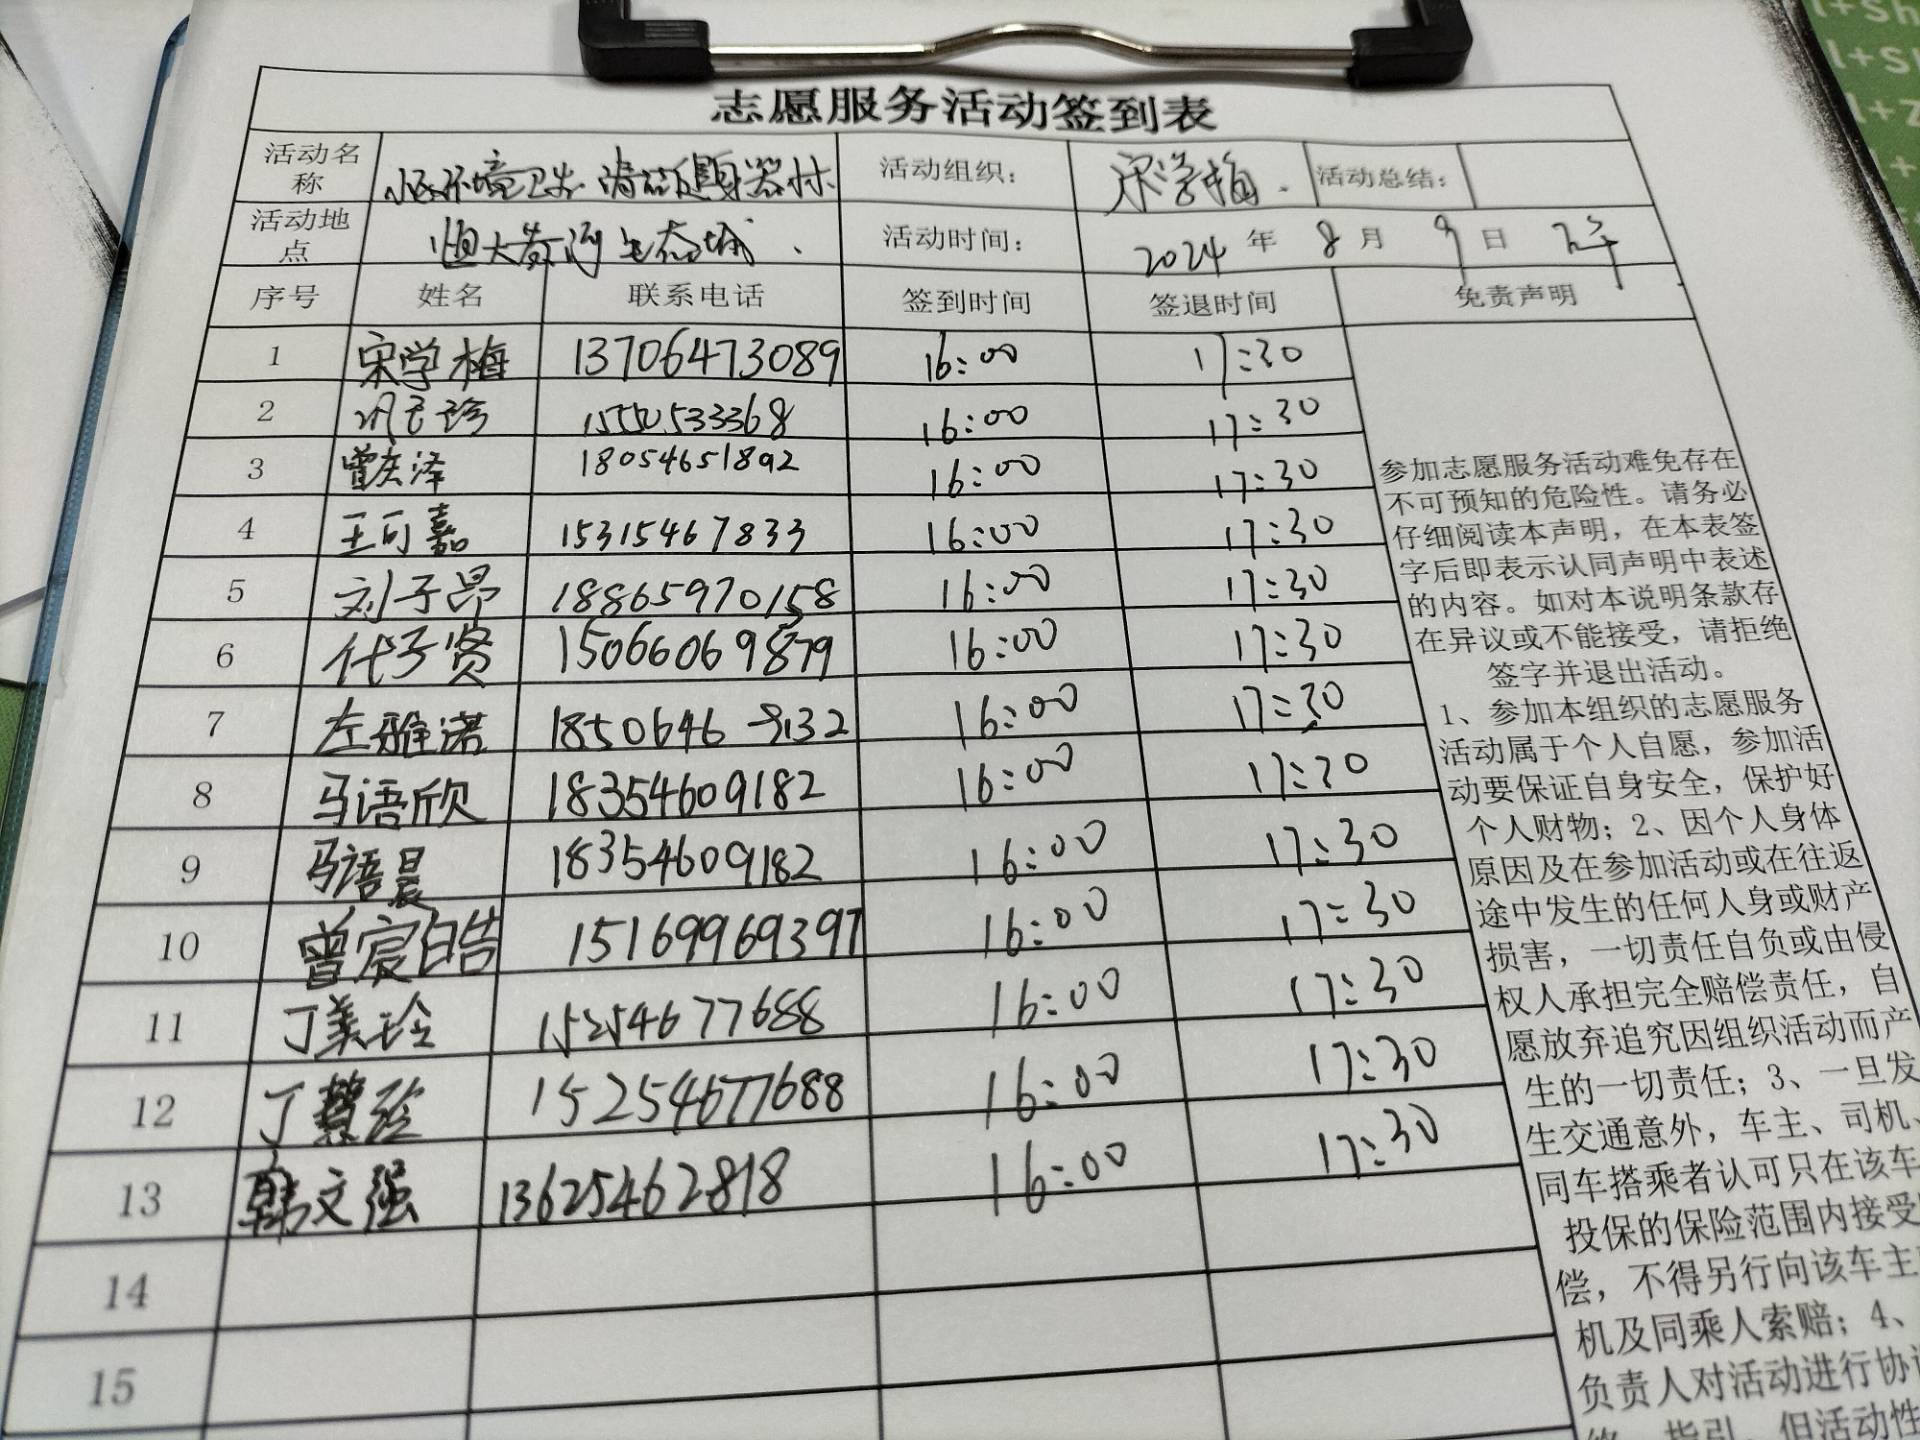 志愿服务活动签到表
活动名称 小区环境卫生 清洁健身器材 活动组织： 宋学梅. 活动总结：
活动地点 恒大黄河生态城. 活动时间： 2024 年 8 月 9 日 下午
序号 姓名 联系电话 签到时间 签退时间 免责声明
1 宋学梅 13706473089 16:00 17:30
2 15550533368 16:00 17:30
3 曾庆泽 18054651892 16:00 17:30
4 王可嘉 15315467833 16:00 17:30
5 刘子昂 18865970158 16:00 17:30
6 代子贤 15066069879 16:00 17:30
7 左雅诺 1850646 9132 16:00 17:30
8 马语欣 18354609182 16:00 17:30
9 马语晨 18354609182 16:00 17:30
10 曾宸皓 15169969397 16:00 17:30
11 丁美玲 15254677688 16:00 17:30
12 丁慧玲 15254677688 16:00 17:30
13 韩文强 13625462818 16:00 17:30
14
15
参加志愿服务活动难免存在
不可预知的危险性。请务必
仔细阅读本声明，在本表签
字后即表示认同声明中表述
的内容。如对本说明条款存
在异议或不能接受，请拒绝
签字并退出活动。
1、参加本组织的志愿服务
活动属于个人自愿，参加活
动要保证自身安全，保护好
个人财物；2、因个人身体
原因及在参加活动或在往返
途中发生的任何人身或财产
损害，一切责任自负或由侵
权人承担完全赔偿责任，自
愿放弃追究因组织活动而产
生的一切责任；3、一旦发
生交通意外，车主、司机、
同车搭乘者认可只在该车
投保的保险范围内接受
偿，不得另行向该车主
机及同乘人索赔；4、
负责人对活动进行协
指引，但活动性